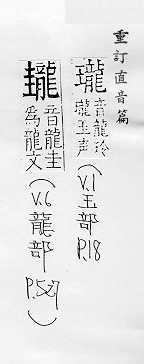 重訂直音篇
瓏
音龍玲
瓏玉声
(V.1玉部P.18
音龍圭
為龍文
(V.6龍部P.527)